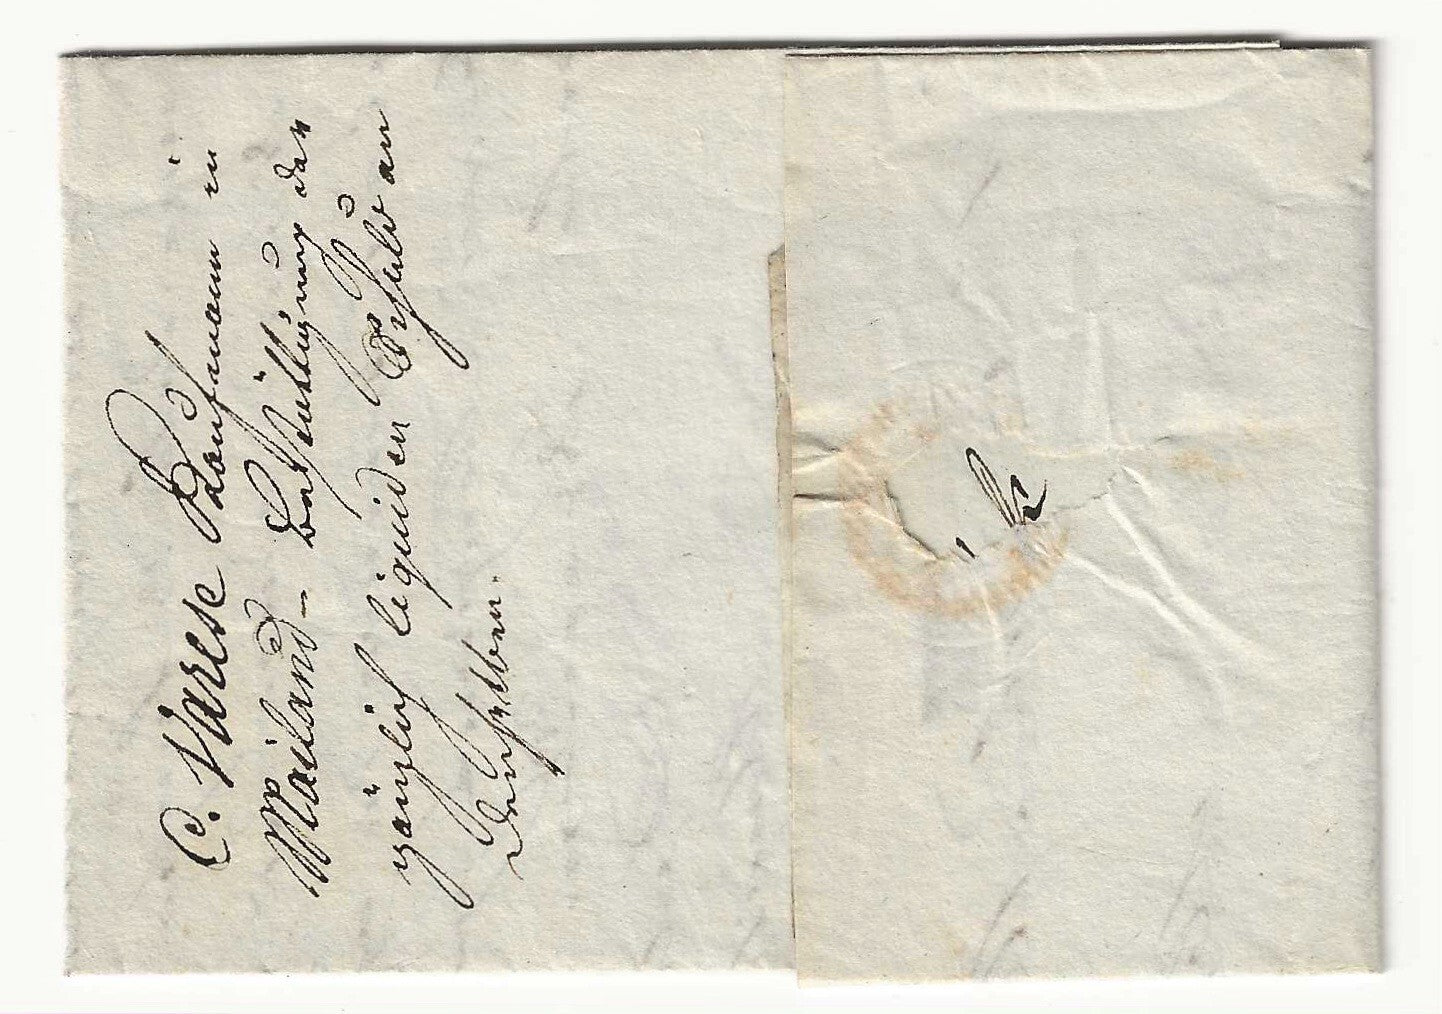 C. Varese Kaufmann in
Mailand – Bestättigung der
gänzlich liquiden Schuld an
denselben.